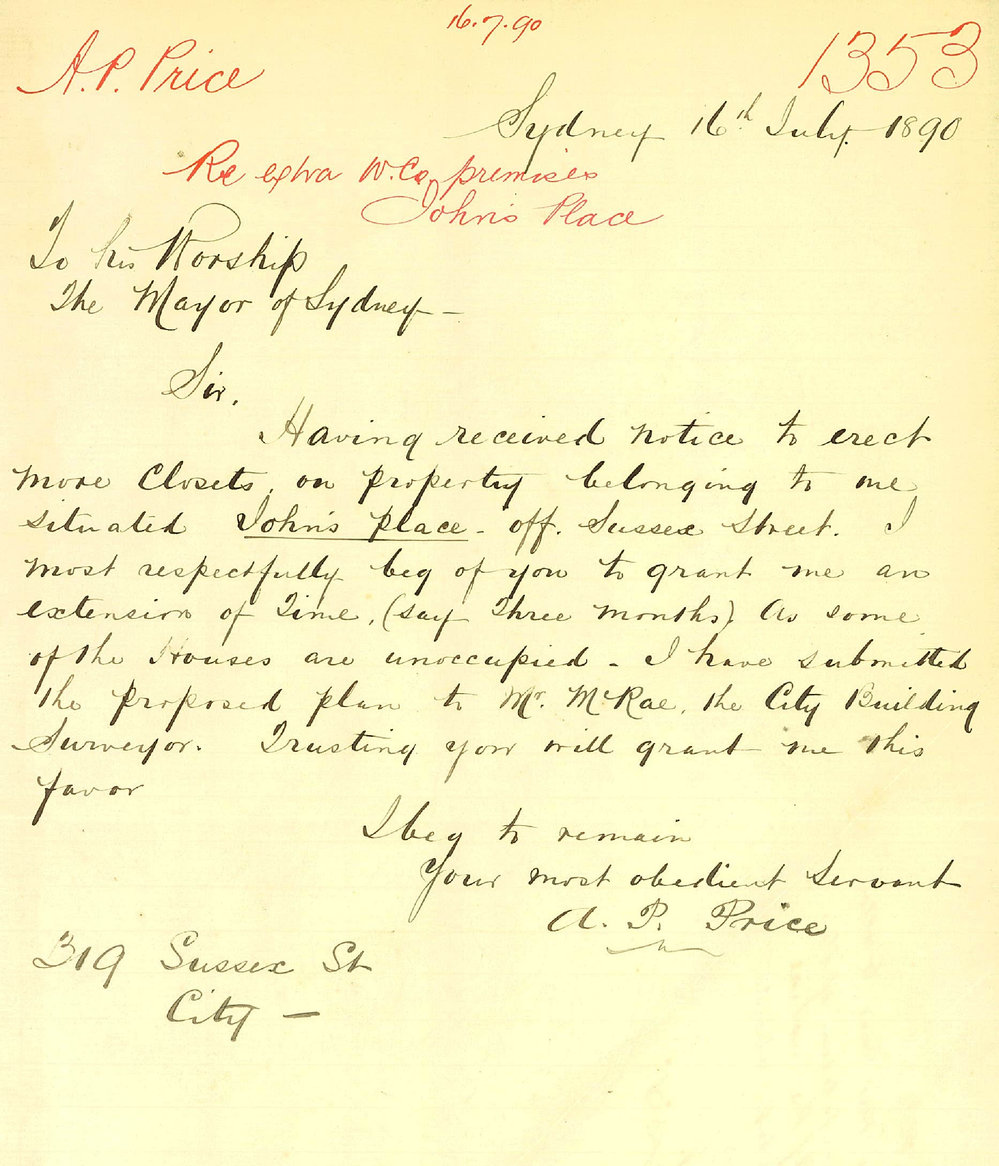 16.7.90
A.P. Price
1353
Sydney 16th July. 1890
Re extra W.Cs, premises
John's Place
To his Worship
The Mayor of Sydney -
Sir,
Having received notice to erect
more Closets, on property belonging to me
situated John's place - off. Sussex Street. I
most respectfully beg of you to grant me an
extension of Time, (say Three months) As some
of the Houses are unoccupied - I have submitted
the proposed plan to Mr. McRae, the City Building
Surveyor. Trusting you will grant me this
favor
I beg to remain
Your most obedient Servant
A. P. Price
319 Sussex St
City -